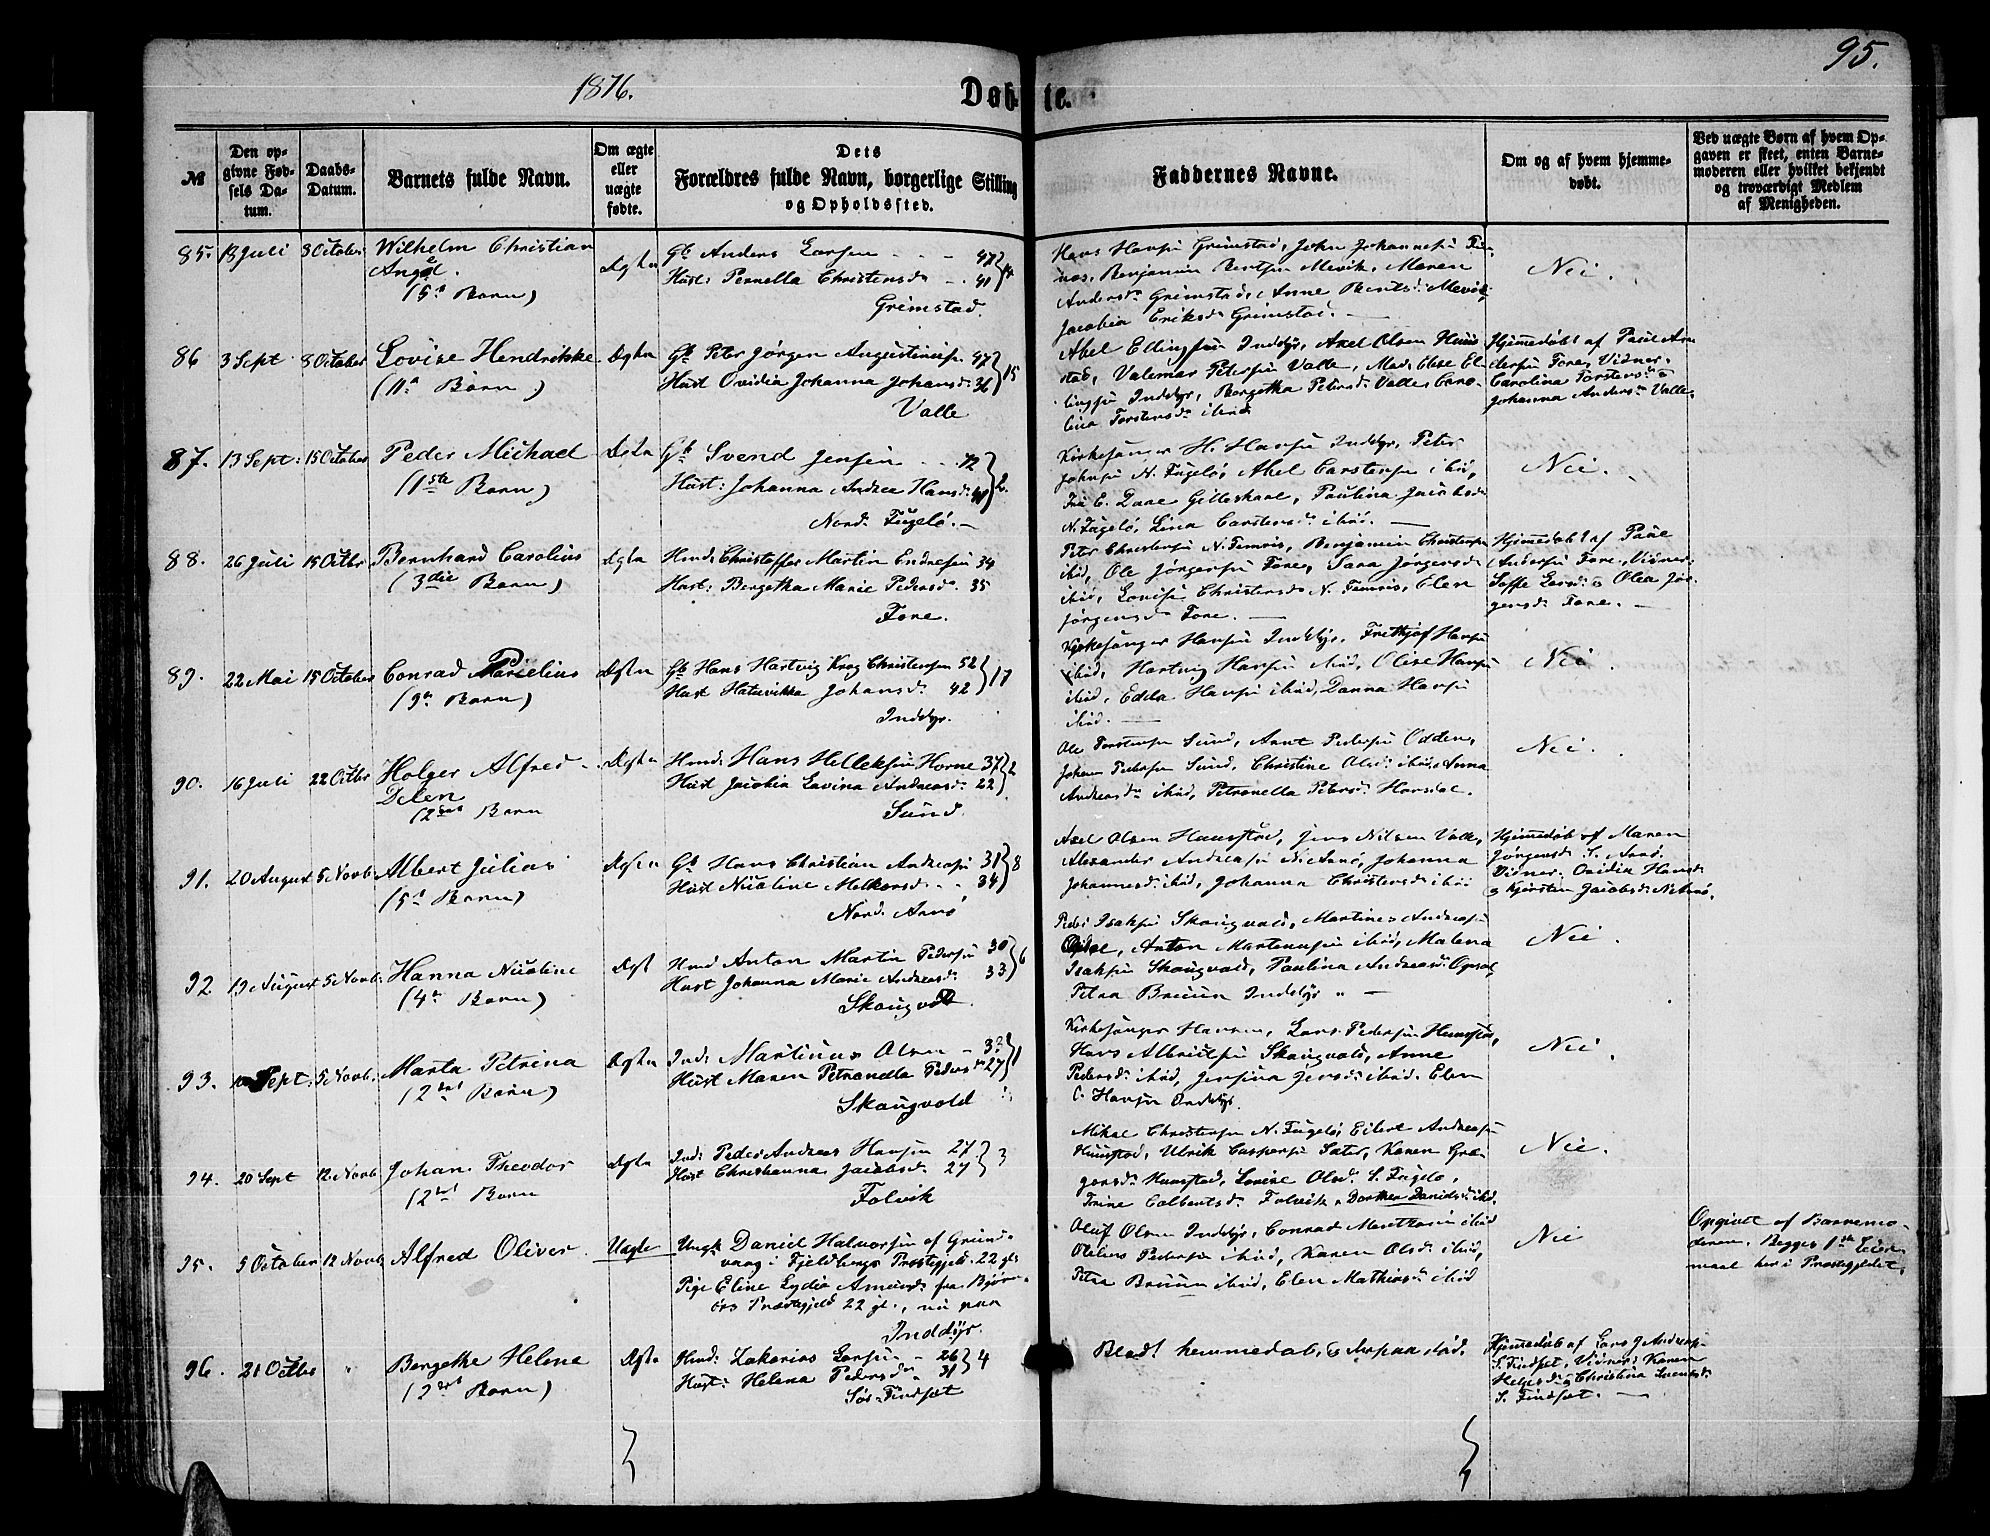 95.
1876.
Døb- te.
№
Den op-
givne Fød-
sels Da-
tum.
Daabs-
Datum.
Barnets fulde Navn.
Om ægte
eller
uægte
fødte.
Dets
Forældres fulde Navn, borgerlige Stilling
og Opholdssted.
Faddernes Navne.
Om og af hvem hjemme-
døbt.
Ved uægte Børn af hvem Op-
gaven er skeet, enten Barne-
moderen eller hvilket bekjendt
og troværdigt Medlem
af Menigheden.
85. 18 Juli 8 October Wilhelm Christian
Angel.
(5te Barn)
Ægten
Gb Anders Larsen - - - 47
Hust: Pernella Christensdr - . 41
Grimstad.
Hans Hansen Grimstad, John Johannesen
Benjamin Bentsen Mevik, Maren
Andersdr Grimstad, Anne Bentsdr Mevik,
Jacobia Eriksdr Grimstad. —
Nei.
86 3 Sept 8 October Lovise Hendrikke
(11te Barn)
Ægten
Gb Peter Jørgen Augustinusen 47
Hust Ovidia Johanna Johansdr 36 15
Valle
Abel Ellingsen Inddyr, Axel Olsen Hun-
stad, Valemar Petersen Valle, Mad. Else El-
lingsen Inddyr, Bergetha Petersdr Valle, Caro-
lina Torstensdr ibid
Hjemmedøbt af Paul An-
dersen Fore, Vidner:
Carolina Torstensdr &
Johanna Andersdr Valle.
87. 13 Sept: 15 October Peder Michael
(1ste Barn)
Ægten
Gb Svend Jensen - - 42
Hust: Johanna Andrea Hansdr 40 2.
Nord. Fugelø. —
Kirkesanger H. Hansen Inddyr, Peter
Johnsen N. Fugelø, Abel Carstensen ibid,
Fru E. Daae Gilleskaal, Paulina Jacobsdr
N. Fugelø, Lina Carstensdr ibid. —
Nei.
88. 26 Juli 15 Octbr Bernhard Carolius
(3die Barn)
Ægten
Hmd: Christoffer Martin Endresen 34
Hust: Bergetha Marie Pedersdr 35
Fore.
Peter Christensen N. Femris, Benjamin Christensen
ibid, Ole Jørgensen Fore, Sara Jørgensdr
ibid, Lovise Christensdr N. Femris, Elen
Jørgensdr Fore. —
Hjemmedøbt af Paul
Andersen Fore, Vidner:
Soffe Larsdr & Olea Jør-
gensdr Fore. —
89. 22 Mai 15 October Conrad Parelius
(9de Barn)
Ægten
Gb Hans Hartvig Krog Christensen 52
Hust Johansdr 42 17
Inddyr.
Kirkesanger Hansen Inddyr, Frithjof Hansen
ibid, Hartvig Hansen ibid, Olise Hansen
ibid, Edda Hansen ibid, Danna Hansen
ibid. —
Nei
90. 16 Juli 22 Octbr Holger Alfred
Delen
(2det Barn
Ægten
Hmd: Hans Helleksen Horne 37 2
Hust Jacobia Lavina Andreasdr 22
Sund.
Ole Torstensen Sund, Arnt Pedersen Odden,
Johan Pedersen Sund, Christine Olsdr ibid, Anna
Andreasdr ibid, Petronella Petersdr Horsdal.
Nei.
91. 20 August 5 Novb. Albert Julius
(5te Barn)
Ægten
Gb Hans Christian Andreasen 31 8
Hust Nicoline Melkersdr - - 34
Nord. Arnø
Axel Olsen Hunstad, Jens Nilsen Valle,
Alexander Andreasen N. Arnø, Johanna
Johannesdr ibid, Johanna Christensdr ibid
Hjemmedøb af Maren
Jørgensdr S. Arnø.
Vidner: Ovidia Hansdr
& Kjersten Jacobsdr N. Arnø.
92. 19 August 5 Novb. Hanna Nicoline
(4de Barn)
Ægt
Hmd Anton Martin Pedersen 30 6
Hust Johanna Marie Andreasdr 33
Skaugvold.
Peder Isaksen Skaugvold, Martines Andreasen
Anton Martinusen ibid, Malena
Isaksen Skaugvold, Paulina Andreasdr Opsal,
Petra Bruun Inddyr. —
Nei.
93. Sept. 5 Novb. Marta Petrina
(2det Barn)
Ægten
Ind: Martinus Olsen - 32 1
Hust Maren Petronella Pedersdr 27
Skaugvold
Kirkesanger Hansen, Lars Pedersen Hunstad,
Hans Albrictsen Skaugvold, Anne
Pedersdr ibid, Jensina Jensdr ibid. Elen
C. Hansen Inddyr.
Nei.
94. 20 Sept 12 Novb Johan Theodor
(2det Barn
Ægten
Ind: Peder Andreas Hansen 27. 3
Hust Christianna Jacobsdr 27
Folvik
Mikal Christensen N. Fugelø, Eilert Andreasen
Hunstad, Ulrik Caspersen Sater, Karen Gre-
gersdr Hunstad, Lovise Olsdr S. Fugelø,
Trine Colbentsdr Folvik, Dorthea Danielsdr ibid.
Nei.
95. 5 October 12 Novb. Alfred Oliver.
Uægte
Ungk Daniel Halvorsen af Grind-
vaag i Fjeldbergs Præstegjeld. 22 gl.
Pige Eline Lydia Amundsdr fra Bjørn-
ørs Præstegjeld 22 gl., nu paa
Inddyr.
Oluf Olsen Inddyr, Conrad ibid
Olelius Pedersen ibid, Karen Olsdr ibid,
Petra Bruun ibid, Elen Mathiasdr ibid
Nei
Opgivet af Barnemo-
deren. Begges 1ste Leier-
maal her i Præstegjeldet.
96. 21 Octbr " Bergethe Helene
(2det Barn)
Ægte
Hmd: Zakarias Larsen - 26 4
Hust: Helena Pedersdr 31
Sør-Findset
Blot hjemmedøb.
Hjemmedøb af Lars J. Andersen
S. Findset, Vidner: Karen
& Christina
S. Findset. —